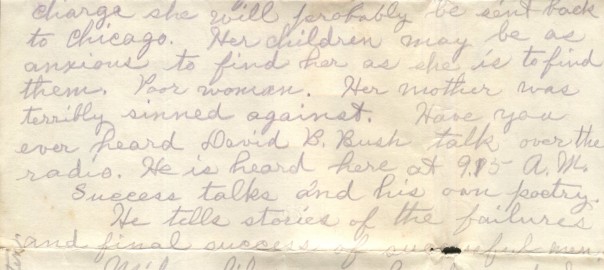 charge she will probably be sent back
to Chicago. Her children may be as
anxious to find her as she is to find
them. Poor woman. Her mother was
terribly sinned against. Have you
ever heard David B. Bush talk over the
radio. He is heard here at 9.15 A.M.
Success talks and his own poetry.
He tells stories of the failures
and final success of successful men